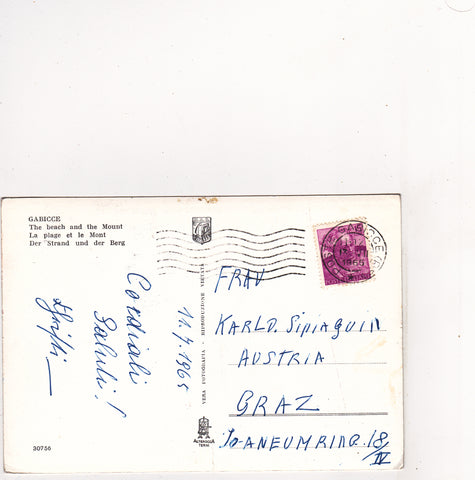 GABICCE
The beach and the Mount
La plage et le Mont
Der Strand und der Berg
Cordiali
Saluti!
11.7.1965
VERA FOTOGRAFIA - RIPRODUZIONE VIETATA
ALTEROCCA
TERNI
30756
GABICCE
1965
FRAU
KARLD. Sipiaguin
AUSTRIA
GRAZ
Jo-ANEUMRING. 18/
IV